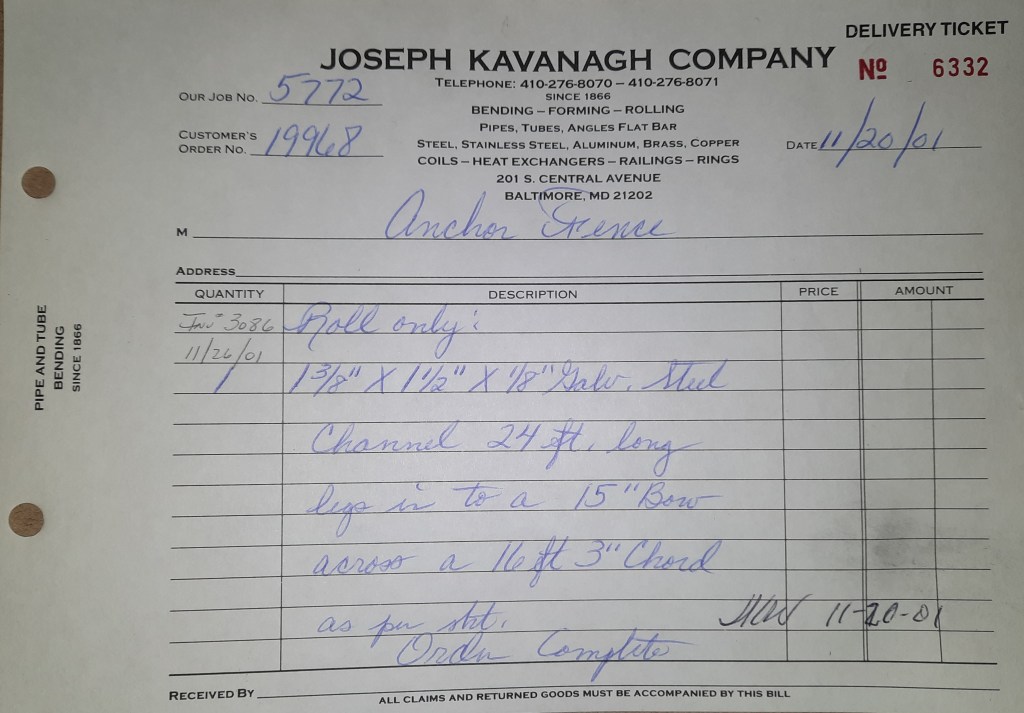 DELIVERY TICKET
JOSEPH KAVANAGH COMPANY
Nº 6332
TELEPHONE: 410-276-8070 – 410-276-8071
SINCE 1866
OUR JOB NO. 5772
BENDING – FORMING – ROLLING
PIPES, TUBES, ANGLES FLAT BAR
CUSTOMER'S
ORDER NO. 19968
STEEL, STAINLESS STEEL, ALUMINUM, BRASS, COPPER
DATE 11/20/01
COILS – HEAT EXCHANGERS – RAILINGS – RINGS
201 S. CENTRAL AVENUE
BALTIMORE, MD 21202
M Anchor Fence
ADDRESS
QUANTITY DESCRIPTION PRICE AMOUNT
Inv# 3086 Roll only:
11/26/01
1 1 3/8" X 1 1/2" X 1/8" Galv. Steel
Channel 24 ft. long
legs in to a 15" Bow
across a 16 ft 3" Chord
as per skt. 11-20-01
Order Complete
RECEIVED BY
ALL CLAIMS AND RETURNED GOODS MUST BE ACCOMPANIED BY THIS BILL
PIPE AND TUBE
BENDING
SINCE 1866